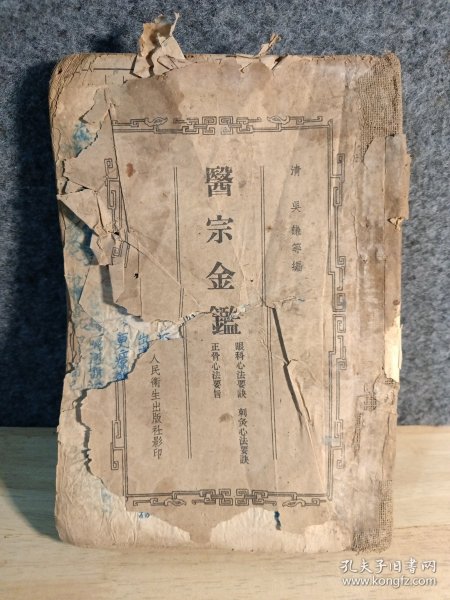 清 吳 謙 等 編
醫宗金鑑
眼科心法要訣
刺灸心法要訣
正骨心法要旨
人民衛生出版社影印
孔夫子旧书网
www.kongfz.com